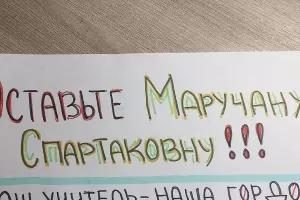 ОСТАВЬТЕ МАРУЧАНУ
СПАРТАКОВНУ!!!
УЧИТЕЛЬ-НАША ГОРДО